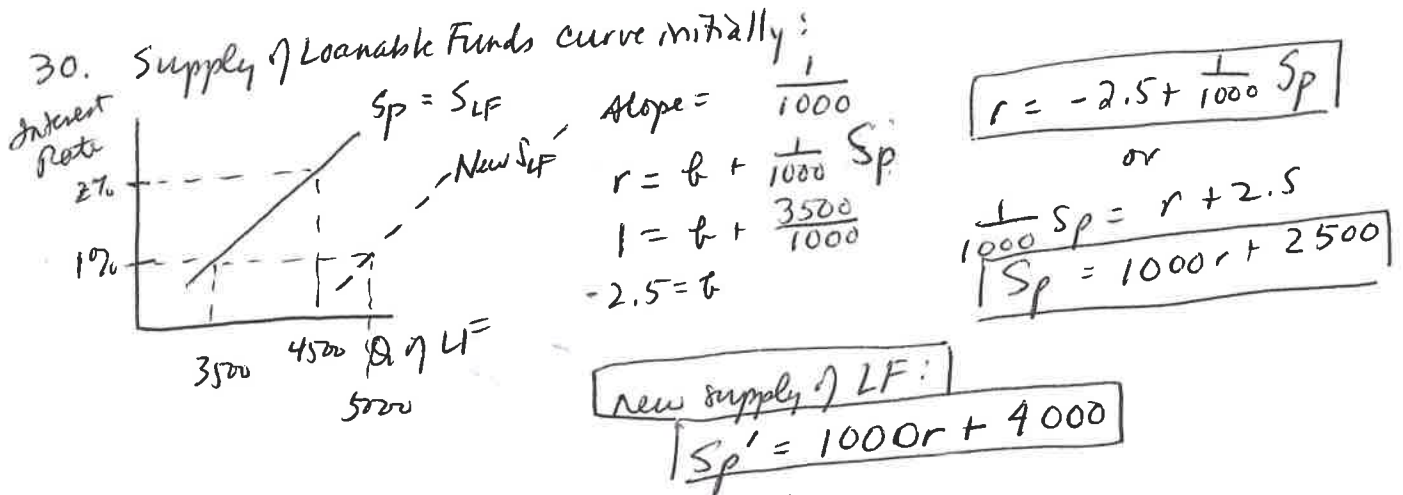 30. Supply of Loanable Funds curve initially:
Interest Rate
2%
1%
Sp = SLF
New SLF'
3500
4500
5000
Q of LF
slope = 1/1000
r = b + 1/1000 Sp
1 = b + 3500/1000
-2.5 = b
r = -2.5 + 1/1000 Sp
or
1/1000 Sp = r + 2.5
Sp = 1000r + 2500
new supply of LF:
Sp' = 1000r + 4000